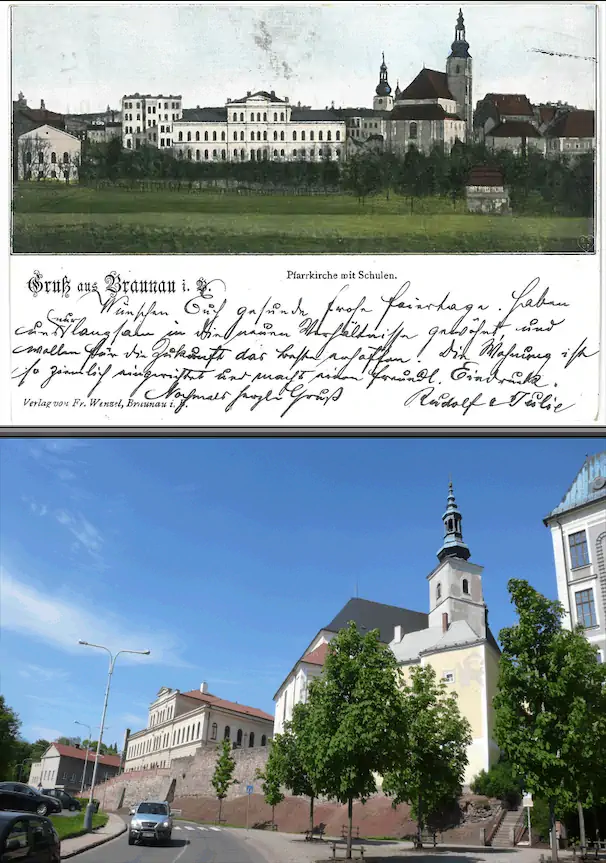 Gruß aus Braunau i. B.
Pfarrkirche mit Schulen.
Wünschen Euch gesunde frohe Feiertage. Haben
uns nur langsam in die neuen Verhältnisse gewöhnt und
wollen für die Zukunft das beste erhoffen. Die Wohnung ist
so ziemlich eingerichtet und macht einen freundl. Eindruck.
Nochmals herzl. Gruß
Rudolf & Julie
Verlag von Fr. Wenzel, Braunau i. B.